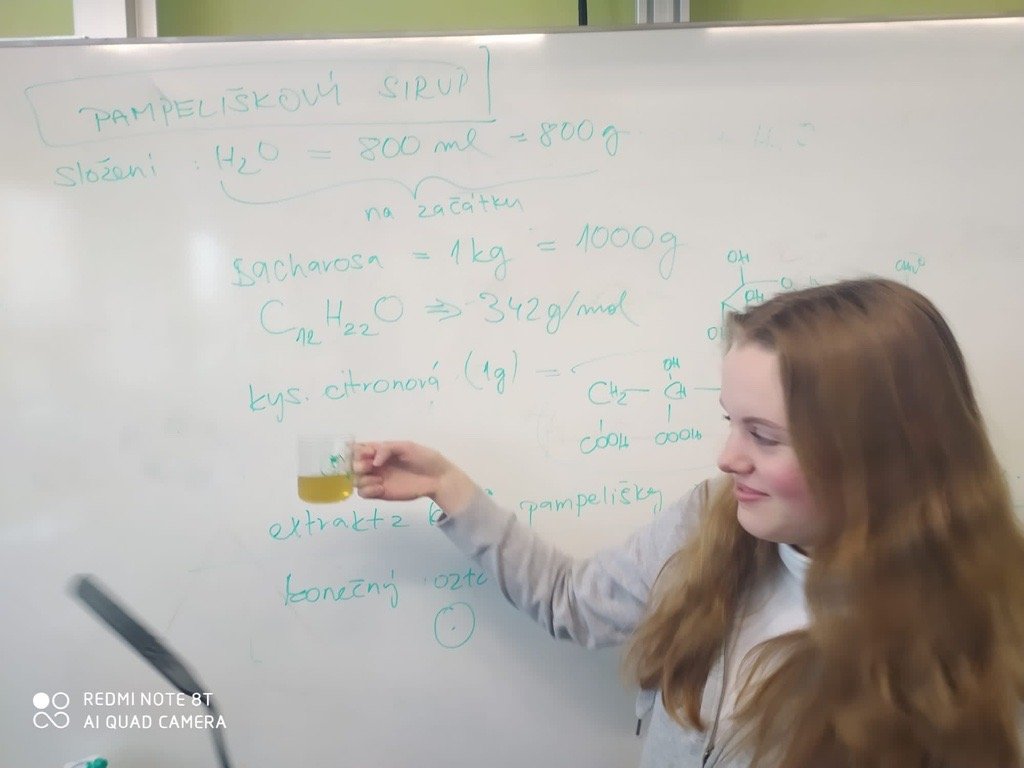 PAMPELIŠKOVÝ SIRUP
složení : H₂O = 800 ml = 800g
na začátku
sacharosa = 1kg = 1000g
C₁₂H₂₂O ⇒ 342g/mol
OH
O
OH
kys. citronová (1g) =
OH
CH₂ — CH —
COOH COOH
extrakt z pampelišky
konečný
REDMI NOTE 8T
AI QUAD CAMERA